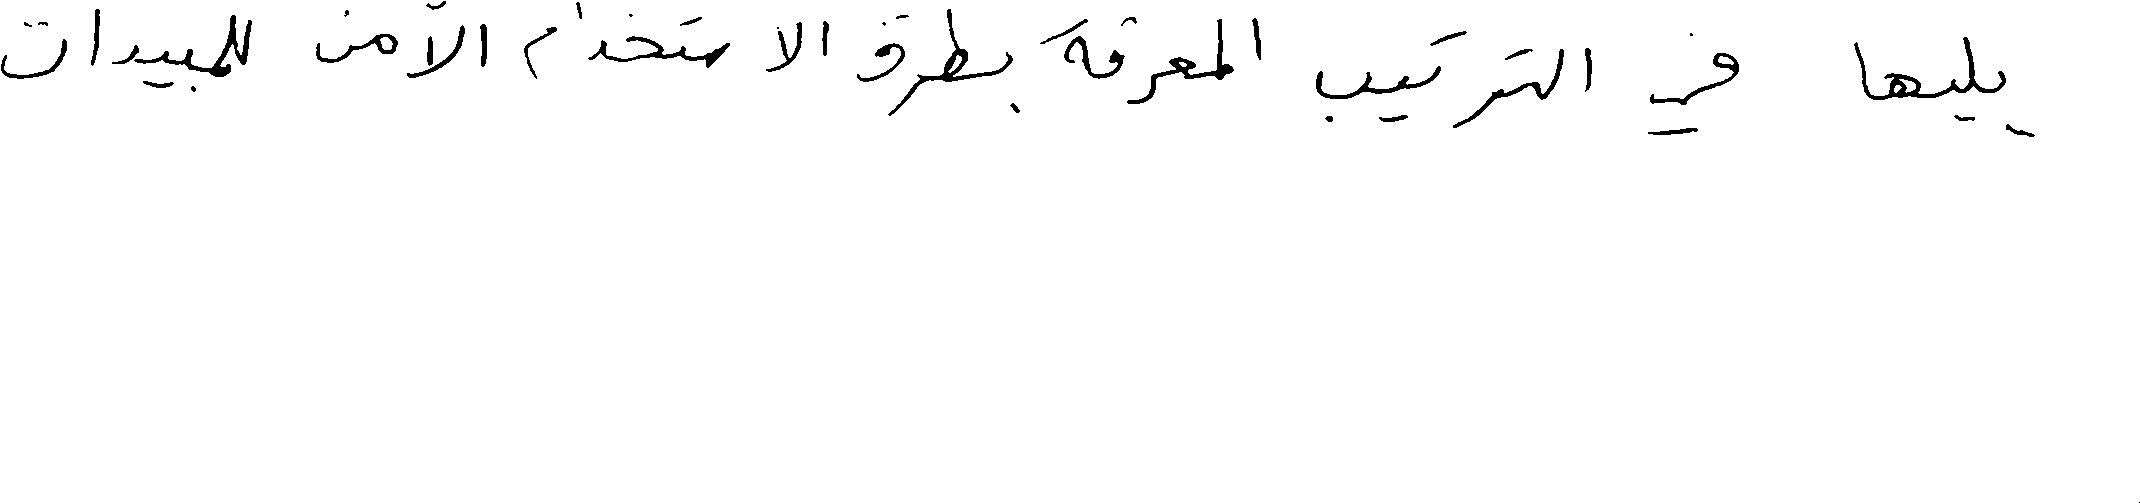 يليها في الترتيب المعرفة بطرق الاستخدام الآمن للمبيدات